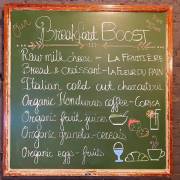 Our
Breakfast BOOST
Raw milk cheese - La FRUITIÈRE
Bread & croissant - La FLEUR DU PAIN
Italian cold cut charcuterie
Organic Honduras coffee - CORICA
Organic fruit juices
Organic granola - cereals
Organic eggs - fruits